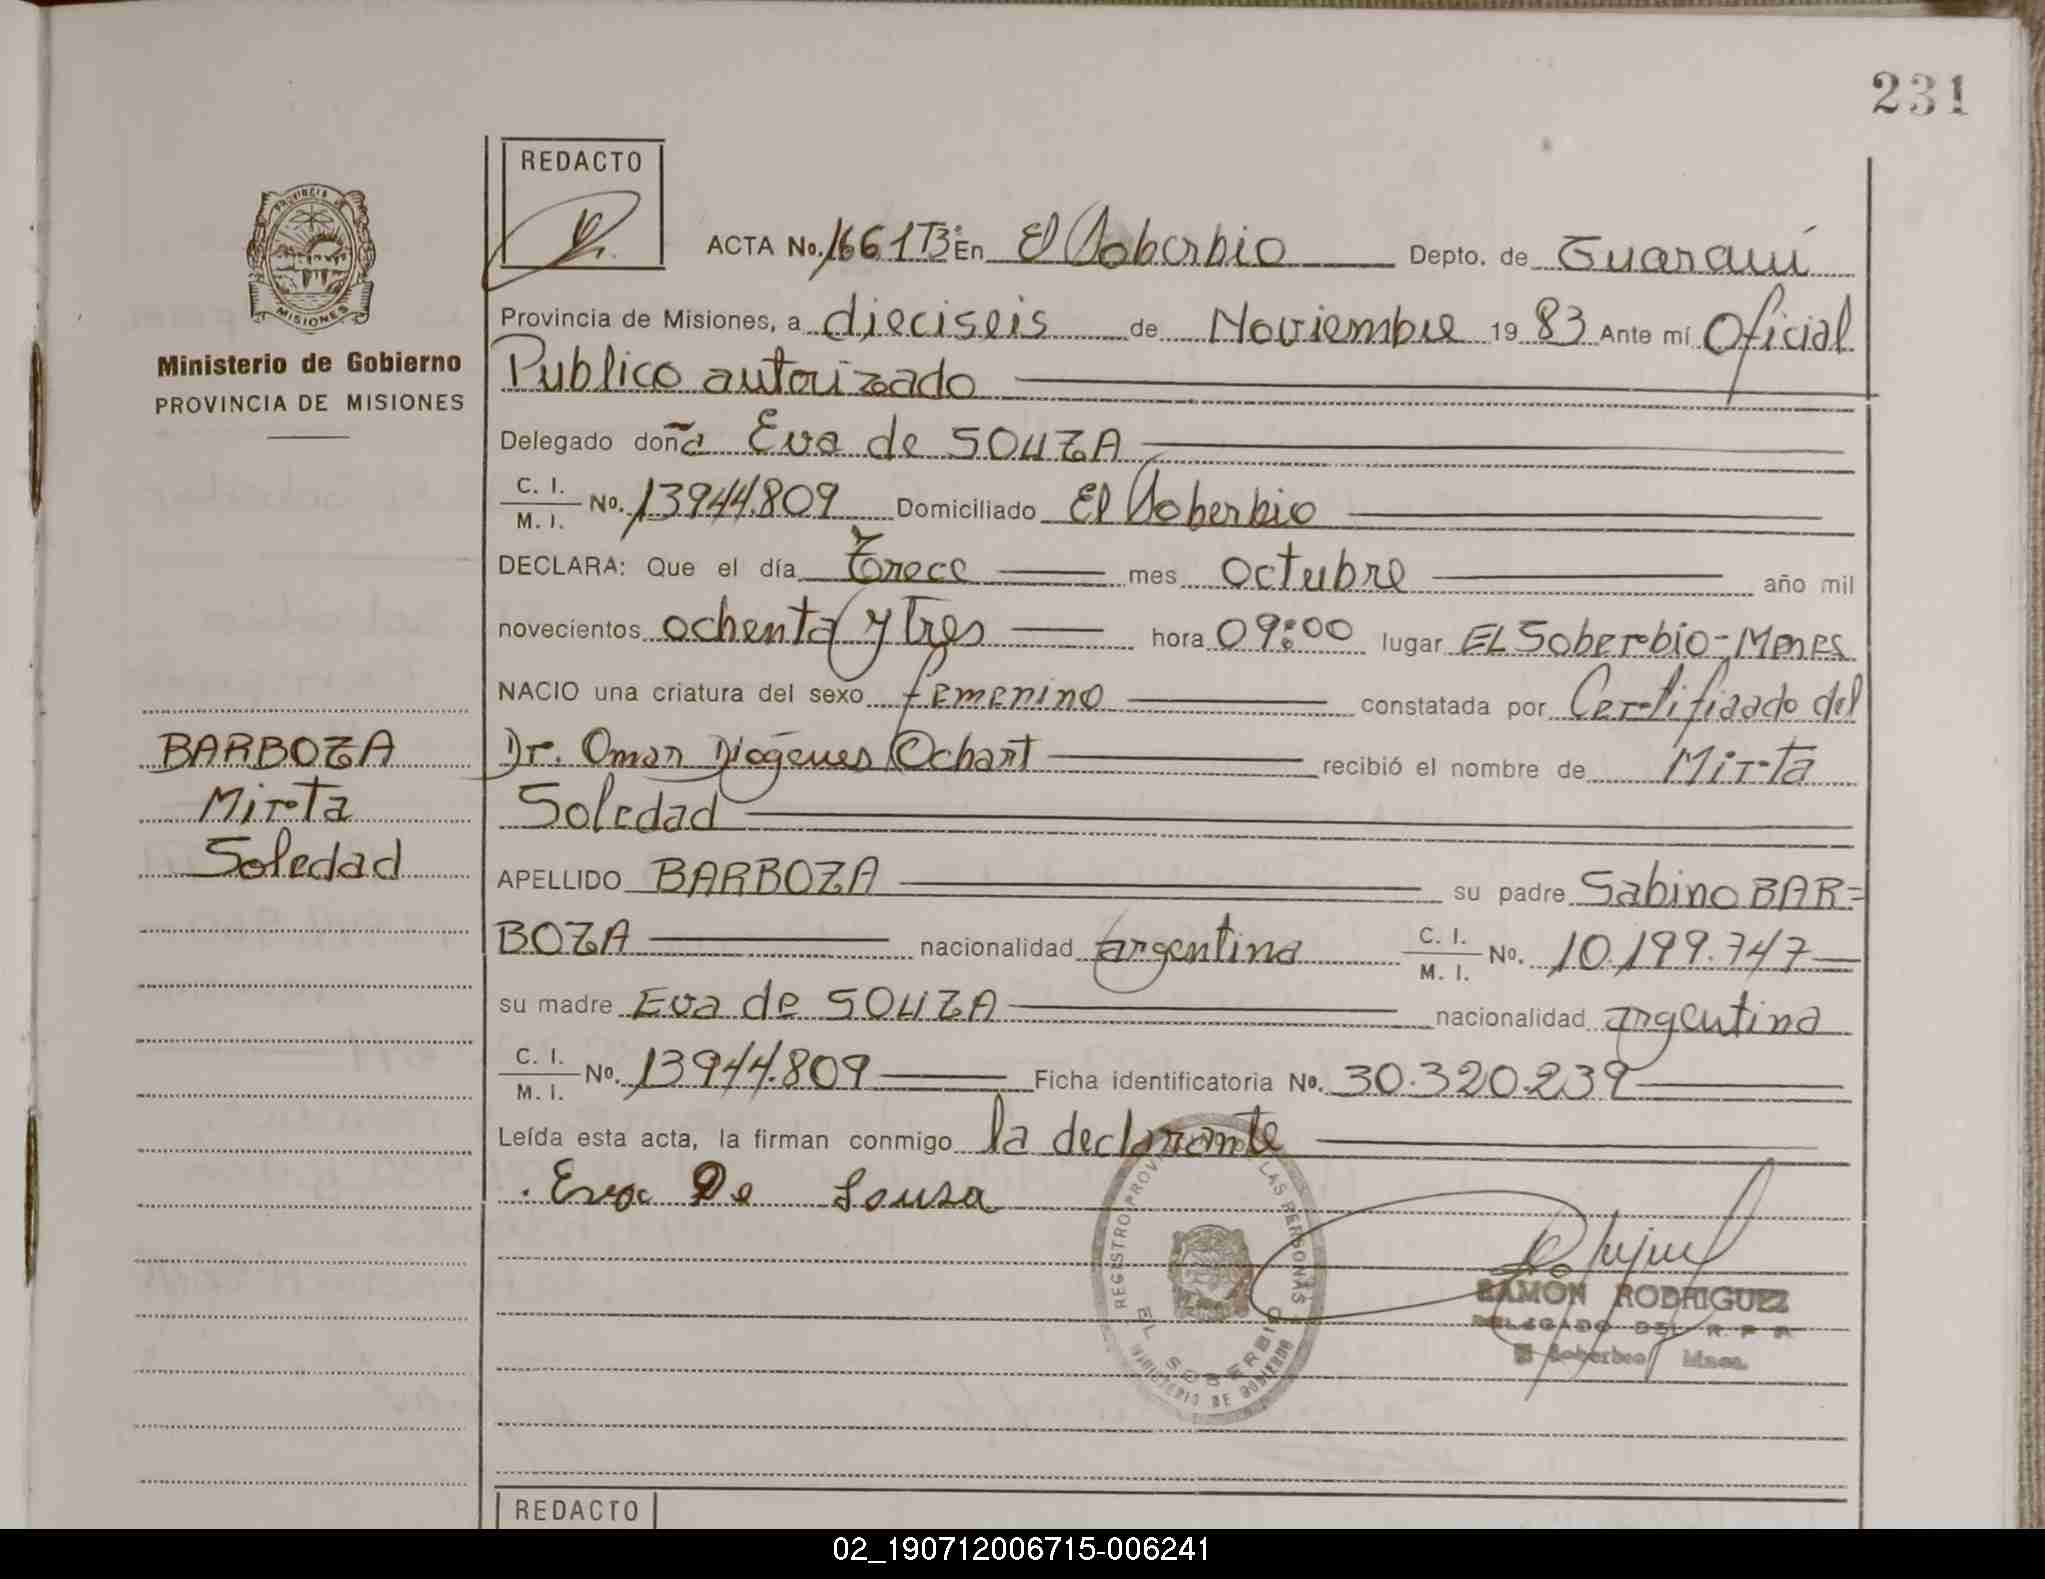 231
REDACTO
PROVINCIA DE
MISIONES
Ministerio de Gobierno
PROVINCIA DE MISIONES
ACTA No. 1661 T3º En El Soberbio Depto. de Guaraní
Provincia de Misiones, a dieciseis de Noviembre 19 83 Ante mí Oficial
Publico autorizado
Delegado doña Eva de SOUZA
C. I.
M. I. No. 13944.809 Domiciliado El Soberbio
DECLARA: Que el día Trece mes octubre año mil
novecientos ochenta y tres hora 09:00 lugar EL Soberbio-Mnes
NACIO una criatura del sexo femenino constatada por Certifiaado del
Dr. Omar Diógenes Ochart recibió el nombre de Mirta
Soledad
BARBOZA
Mirta
Soledad
APELLIDO BARBOZA su padre Sabino BAR=
BOZA nacionalidad argentina C. I.
M. I. No. 10.199.747
su madre Eva de SOUZA nacionalidad argentina
C. I.
M. I. No. 13944.809 Ficha identificatoria No. 30.320.239
Leída esta acta, la firman conmigo la declarante
Eva De Souza
REGISTRO PROVI LAS PERSONAS
EL SOBERBIO
MINISTERIO DE GOBIERNO
RAMÓN RODRIGUEZ
DELEGADO DEL R. P. P.
El Soberbio Mnes.
REDACTO
02_190712006715-006241